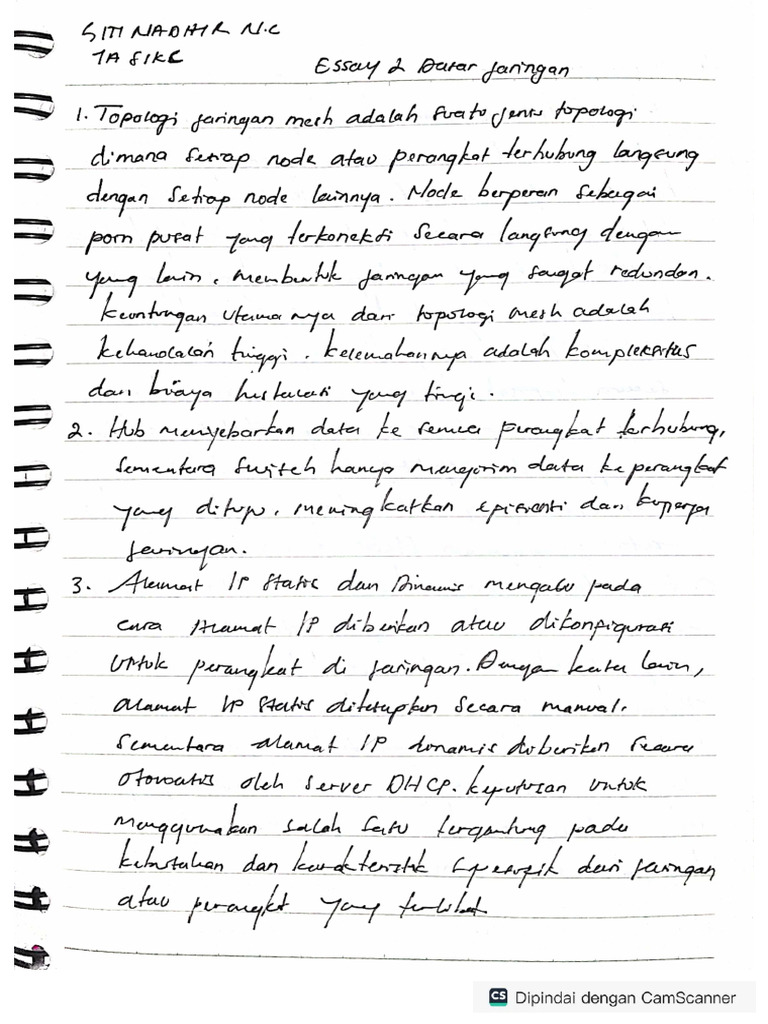 SITI NADHIR N.C
Essay 2 Dasar Jaringan
1. Topologi jaringan mesh adalah suatu jenis topologi
dimana setiap node atau perangkat terhubung langsung
dengan setiap node lainnya. Node berperan sebagai
poin pusat yang terkoneksi secara langsung dengan
yang lain, membentuk jaringan yang sangat redundan.
keuntungan utama nya dari topologi mesh adalah
kehandalan tinggi. kelemahannya adalah kompleksitas
dan biaya instalasi yang tinggi.
2. Hub menyebarkan data ke semua perangkat terhubung,
sementara switch hanya mengirim data ke perangkat
yang dituju, meningkatkan efisiensi dan
jaringan.
3. Alamat IP statis dan Dinamis mengacu pada
cara Alamat IP diberikan atau dikonfigurasi
untuk perangkat di jaringan. Dengan kata lain,
alamat IP statis ditetapkan secara manual,
sementara alamat IP dinamis diberikan secara
otomatis oleh server DHCP. keputusan untuk
menggunakan salah satu tergantung pada
kebutuhan dan karakteristik spesifik dari jaringan
atau perangkat yang terlibat
CS Dipindai dengan CamScanner